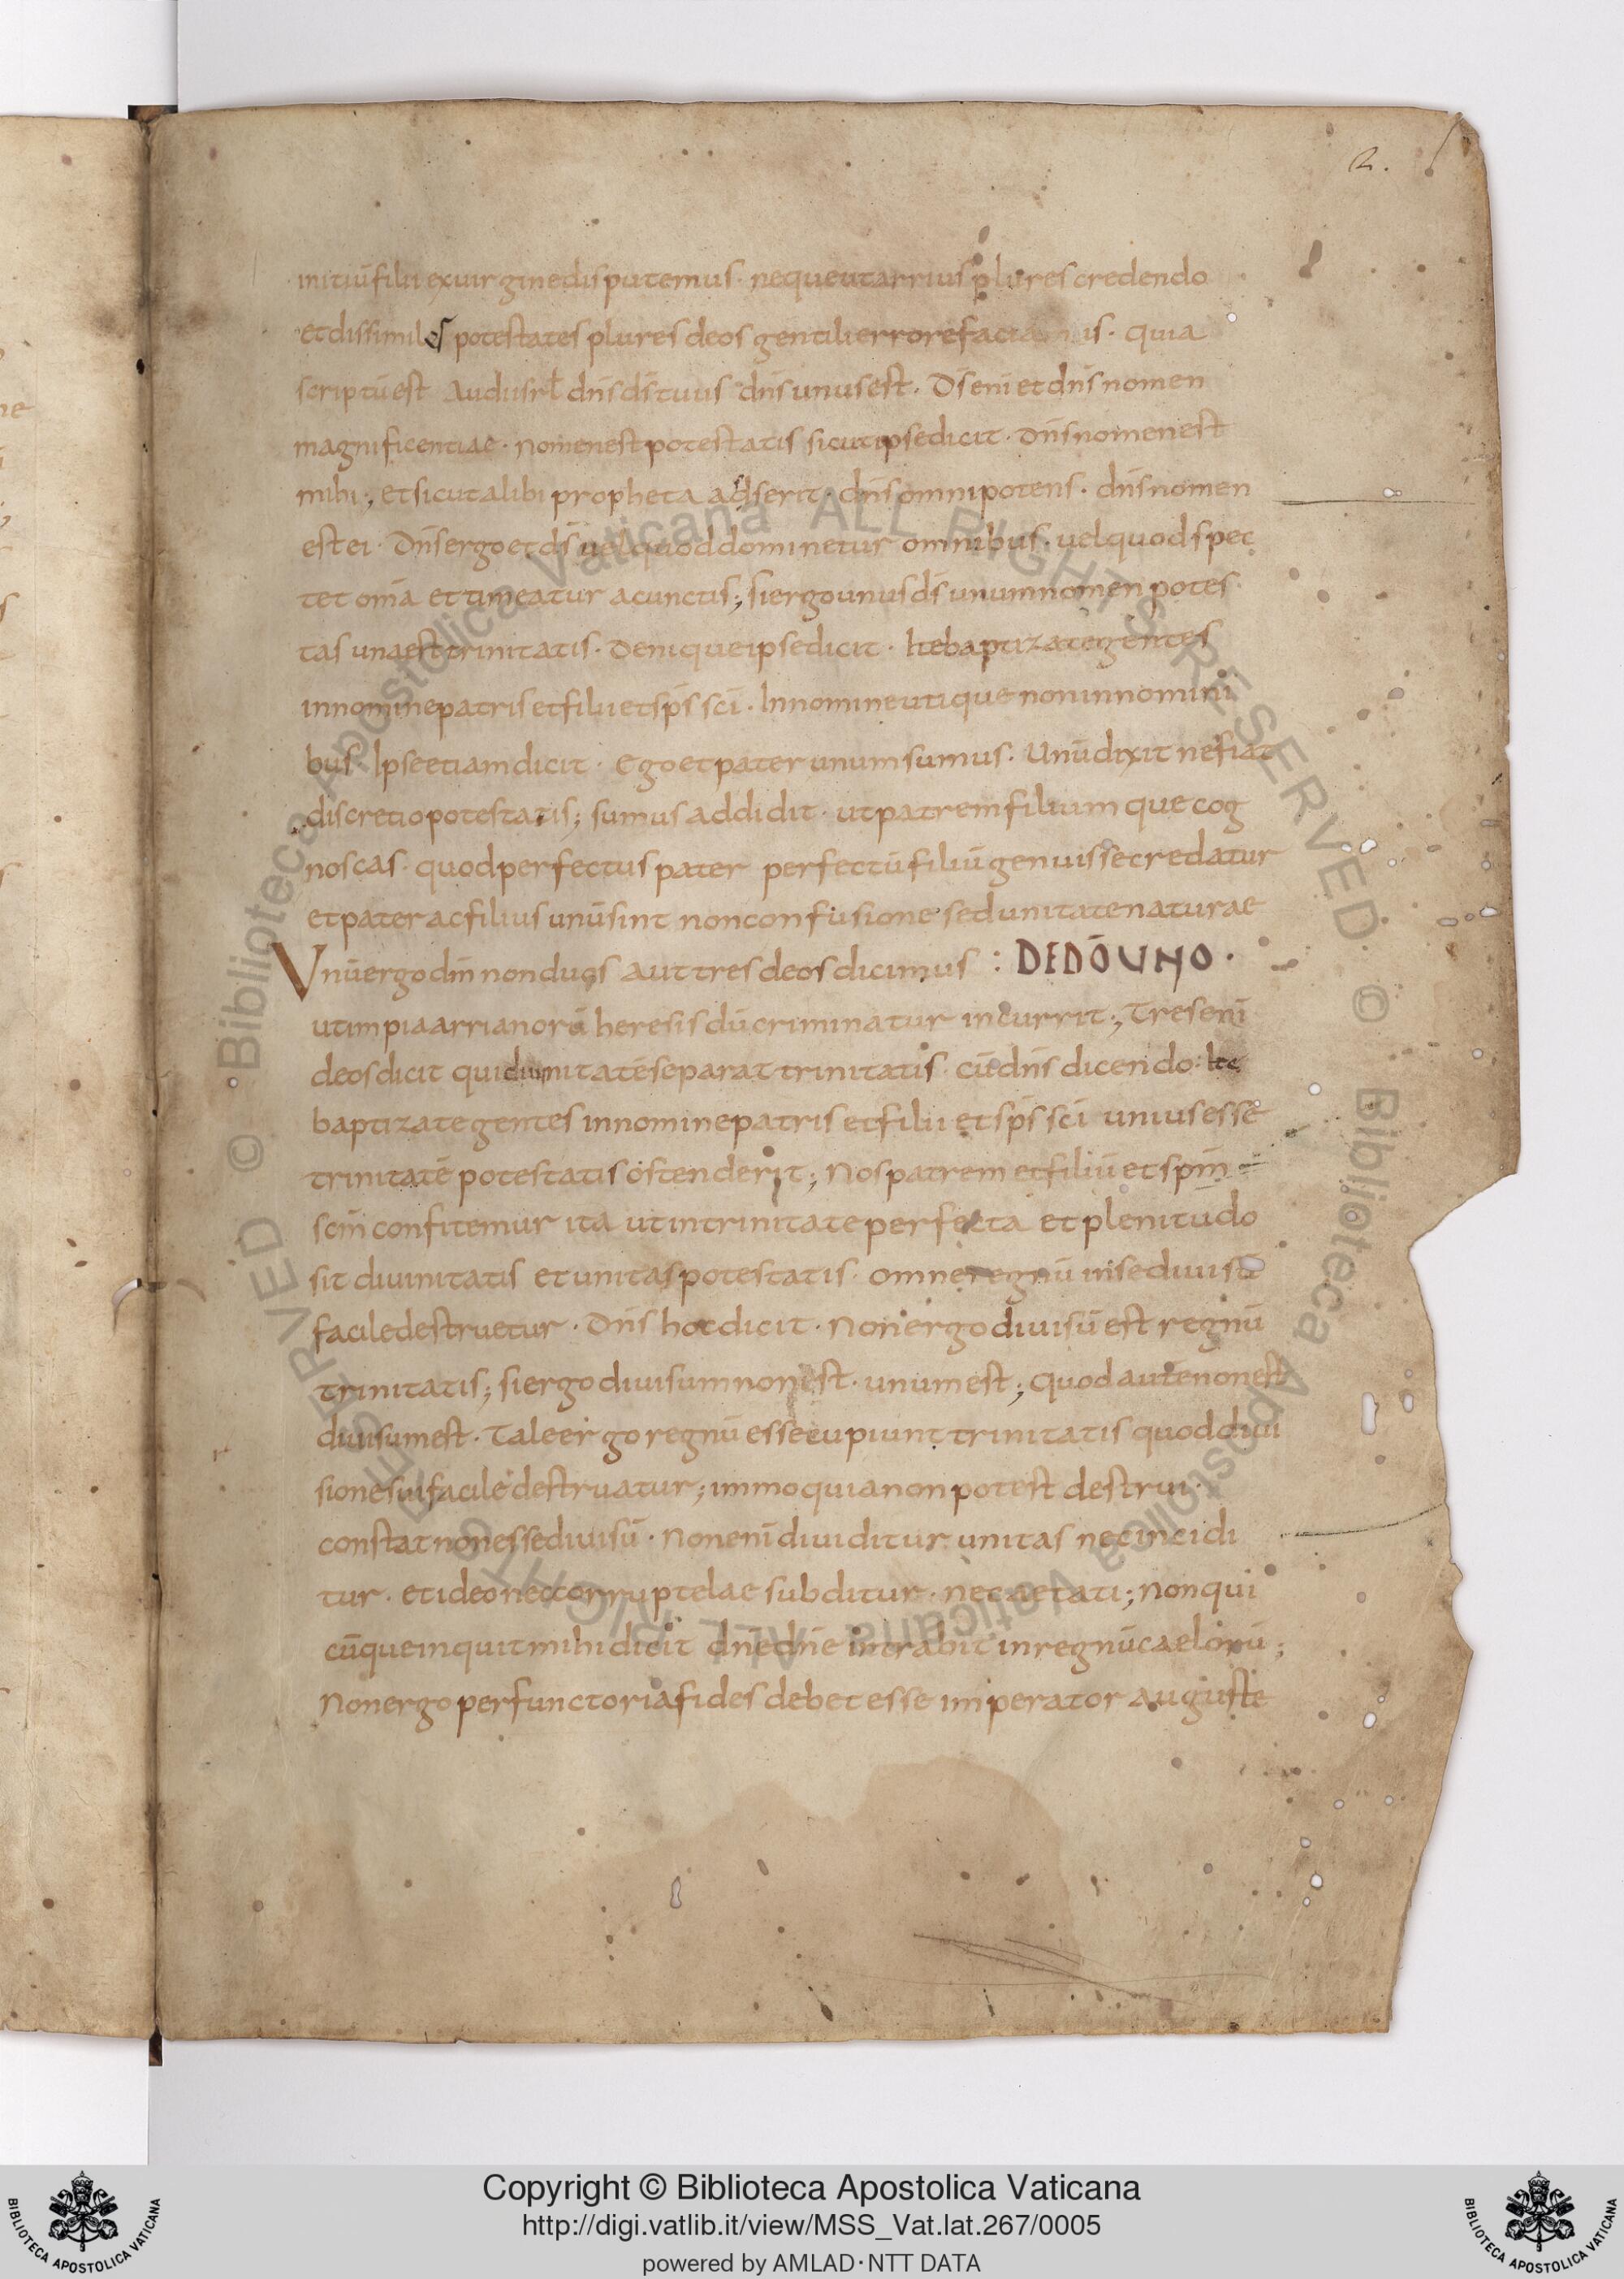 2.
initiū filii ex uirgine disputemus· neque ut arrius plures credendo
et dissimiles potestates plures deos gentili errore faciamus· quia
scriptū est Audi isrl dn̄s ds̄ tuus dn̄s unus est· Ds̄ enī et dn̄s nomen
magnificentiae· nomen est potestatis sicut ipse dicit· dn̄s nomen est
mihi; et sicut alibi propheta adserit· dn̄s omnipotens· dn̄s nomen
est ei· Dn̄s ergo et ds̄ uel quod dominetur omnibus· uel quod spec
tet omīa et timeatur a cunctis; si ergo unus ds̄ unum nomen potes
tas una est trinitatis· Denique ipse dicit· Ite baptizate gentes
in nomine patris et filii et sp̄s sc̄i· In nomine utique non in nomini
bus· Ipse etiam dicit· Ego et pater unum sumus· Unū dixit ne fiat
discretio potestatis; sumus addidit· ut patrem filiumque cog
noscas· quod perfectus pater perfectū filiū genuisse credatur
et pater ac filius unū sint non confusione sed unitate naturae
Vnū ergo dm̄ non duos aut tres deos dicimus : DE DŌ UNO·
ut impia arrianorū heresis dū criminatur incurrit; Tres enī
deos dicit qui diuinitatē separat trinitatis· cū dn̄s dicendo· Ite
baptizate gentes in nomine patris et filii et sp̄s sc̄i unius esse
trinitatē potestatis ostenderit; Nos patrem et filiū et spm̄
scm̄ confitemur ita ut in trinitate perfecta et plenitudo
sit diuinitatis et unitas potestatis· omne regnū in se diuisū
facile destruetur· Dn̄s hoc dicit· Non ergo diuisū est regnū
trinitatis; si ergo diuisum non est· unum est; quod autē non est
diuisum est· Tale ergo regnū esse cupiunt trinitatis quod diui
sione sui facile destruatur; immo quia non potest destrui·
constat non esse diuisū· Non enī diuiditur unitas nec incidi
tur· et ideo nec corruptelae subditur· nec aetati; Non qui
cūque inquit mihi dicit dn̄e dn̄e intrabit in regnū caelorū;
Non ergo perfunctoria fides debet esse imperator auguste
Copyright © Biblioteca Apostolica Vaticana
http://digi.vatlib.it/view/MSS_Vat.lat.267/0005
powered by AMLAD · NTT DATA
BIBLIOTECA APOSTOLICA VATICANA
BIBLIOTECA APOSTOLICA VATICANA
© Biblioteca Apostolica Vaticana ALL RIGHTS RESERVED
© Biblioteca Apostolica Vaticana ALL RIGHTS RESERVED